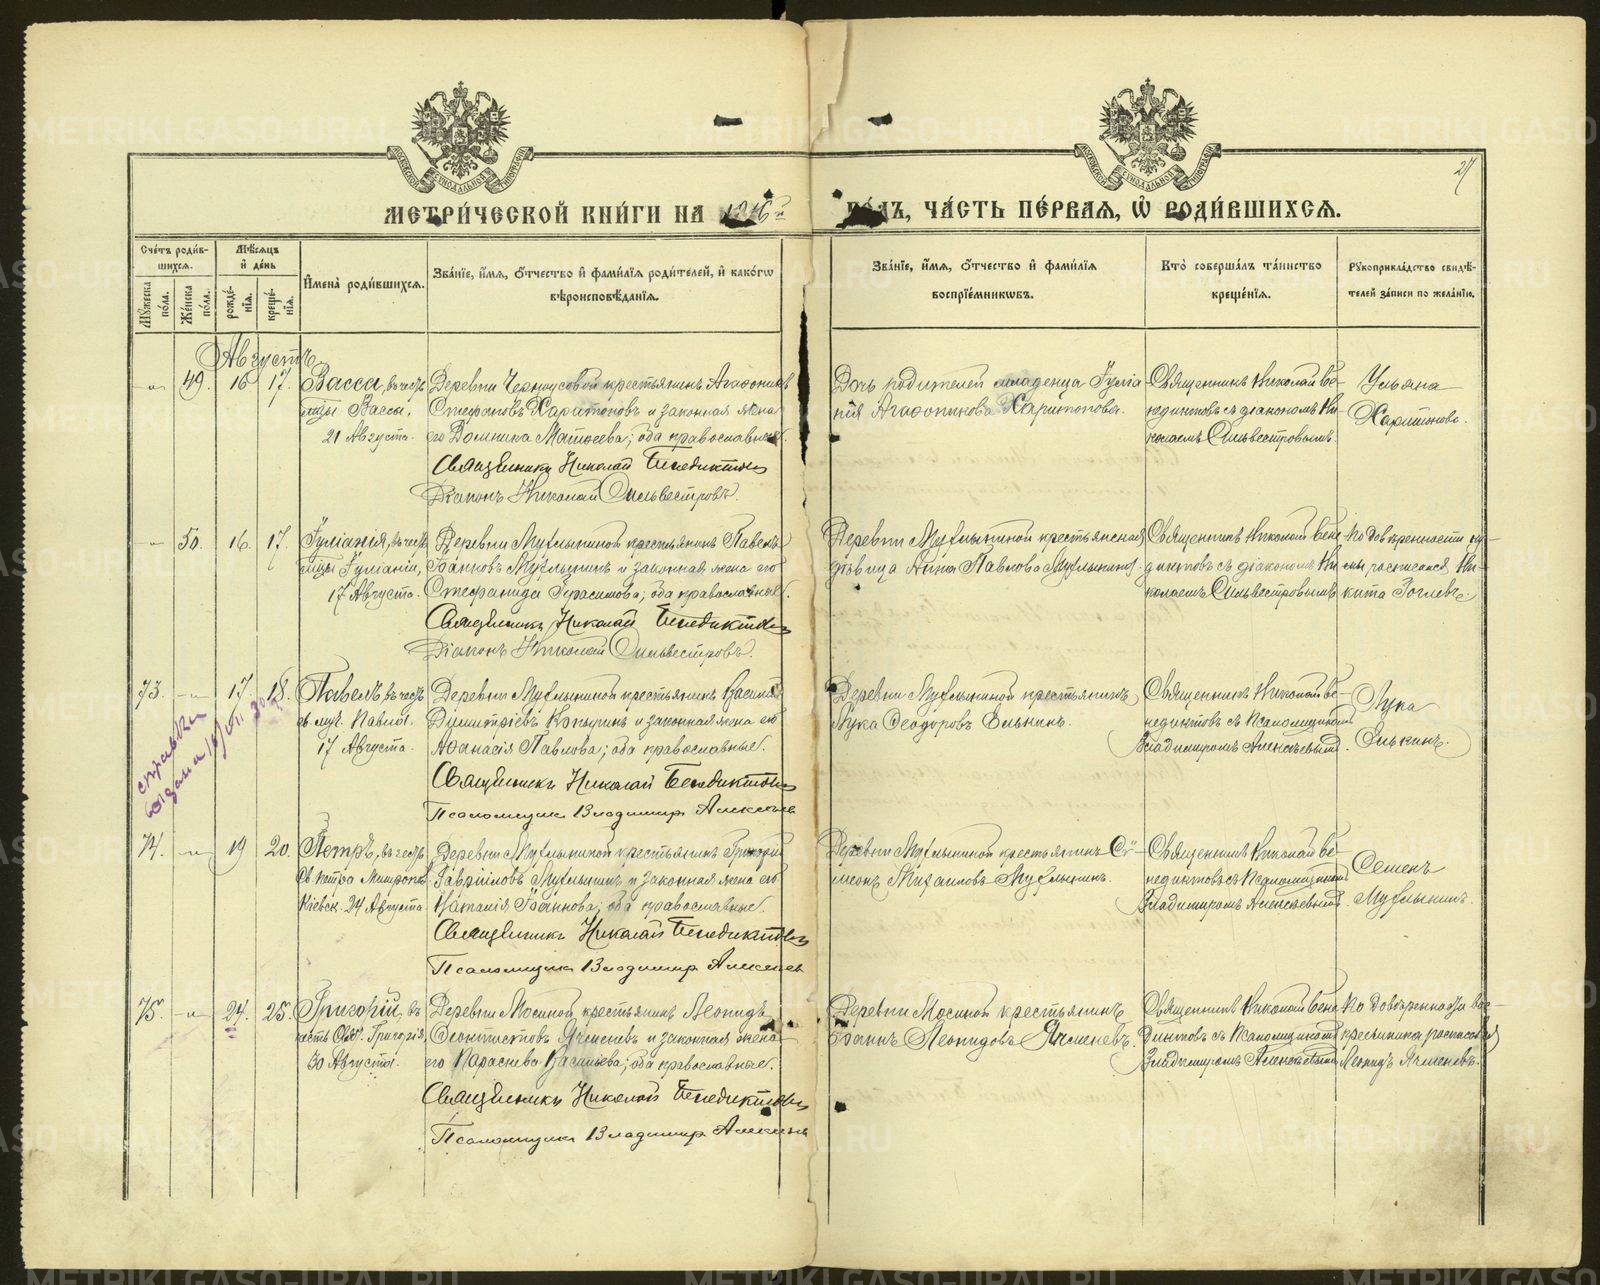 МЕТРИ́ЧЕСКОЙ КНИ́ГИ НА
ГОДЪ, ЧА́СТЬ ПЕ́РВАЯ, Ѡ РОДИ́ВШИХСЯ.
27
Сче́тъ роди́в-
шихся.
Мꙋ́жеска по́ла.
Же́нска по́ла.
Мѣ́сяцъ
и́ де́нь
рожде́нія.
креще́нія.
И҆мена̀ роди́вшихся.
Зва́нїе, и҆́мя, ѻ҆́тчество и҆ фами́лїя роди́телей, и҆ како́гѡ
вѣроисповѣ́данїя.
Зва́нїе, и҆́мя, ѻ҆́тчество и҆ фами́лїя
воспрїе́мникѡвъ.
Кто̀ соверша́лъ та́инство
креще́нїя.
Рꙋкоприкла́дство свидѣ́-
телей за́писи по жела́нїю.
Августъ
49. 16 17. Васса, въ честь
мцы Вассы,
21 Августа.
Деревни Черноусовой крестьянинъ Агафоникъ
Стефановъ Харитоновъ и законная жена
его Домника Матѳеева; оба православные.
Священникъ Николай Бенедиктовъ
Діаконъ Николай Сильвестровъ.
Дочь родителей младенца Іуліа-
нія Агафоникова Харитонова.
Священникъ Николай Бе-
недиктовъ съ діакономъ Ни-
колаемъ Сильвестровымъ.
Ульяна
Харитонова.
50. 16. 17. Іуліанія, въ честь
мцы Іуліаніи,
17 Августа.
Деревни Мухлыниной крестьянинъ Павелъ
Іоанновъ Мухлынинъ и законная жена его
Стефанида Герасимова; оба православные.
Священникъ Николай Бенедиктовъ
Діаконъ Николай Сильвестровъ.
Деревни Мухлыниной крестьянская
дѣвица Анна Павлова Мухлынина.
Священникъ Николай Бене-
диктовъ съ діакономъ Ни-
колаемъ Сильвестровымъ
73. 17. 18. Павелъ, въ честь
св. муч. Павла.
17 Августа.
Деревни Мухлыниной крестьянинъ Василій
Димитріевъ и законная жена его
Аѳанасія Павлова; оба православные.
Священникъ Николай Бенедиктовъ
Псаломщикъ Владимиръ Алексѣевъ
Деревни Мухлыниной крестьянинъ
Лука Ѳеодоровъ Елькинъ.
Священникъ Николай Бе-
недиктовъ съ Псаломщикомъ
Владимиромъ Алексѣевымъ.
Лука
Елькинъ.
справка
выдана
74. 19 20. Петръ, въ честь
Св. Петра Митропол.
Кіевск. 24 Августа
Деревни Мухлыниной крестьянинъ Григорій
Гавріиловъ Мухлынинъ и законная жена его
Наталія Іоаннова, оба православные.
Священникъ Николай Бенедиктовъ
Псаломщикъ Владимиръ Алексѣевъ
Деревни Мухлыниной крестьянинъ Си-
меонъ Михаиловъ Мухлынинъ.
Священникъ Николай Бе-
недиктовъ съ Псаломщикомъ
Владимиромъ Алексѣевымъ.
Семенъ
Мухлынинъ.
75. 24. 25. Григорій, въ
честь Св. Григорія,
30 Августа.
Деревни Мосиной крестьянинъ Леонидъ
Ячменевъ и законная жена
его Параскева Васильева; оба православные.
Священникъ Николай Бенедиктовъ
Псаломщикъ Владимиръ Алексѣевъ
Деревни Мосиной крестьянинъ
Іоаннъ Леонидовъ Ячменевъ.
Священникъ Николай Бене-
диктовъ съ Псаломщикомъ
Владимиромъ Алексѣевымъ
По довѣренности вос-
пріемника росписался
Леонидъ Ячменевъ.
METRIKI.GASO-URAL.RU